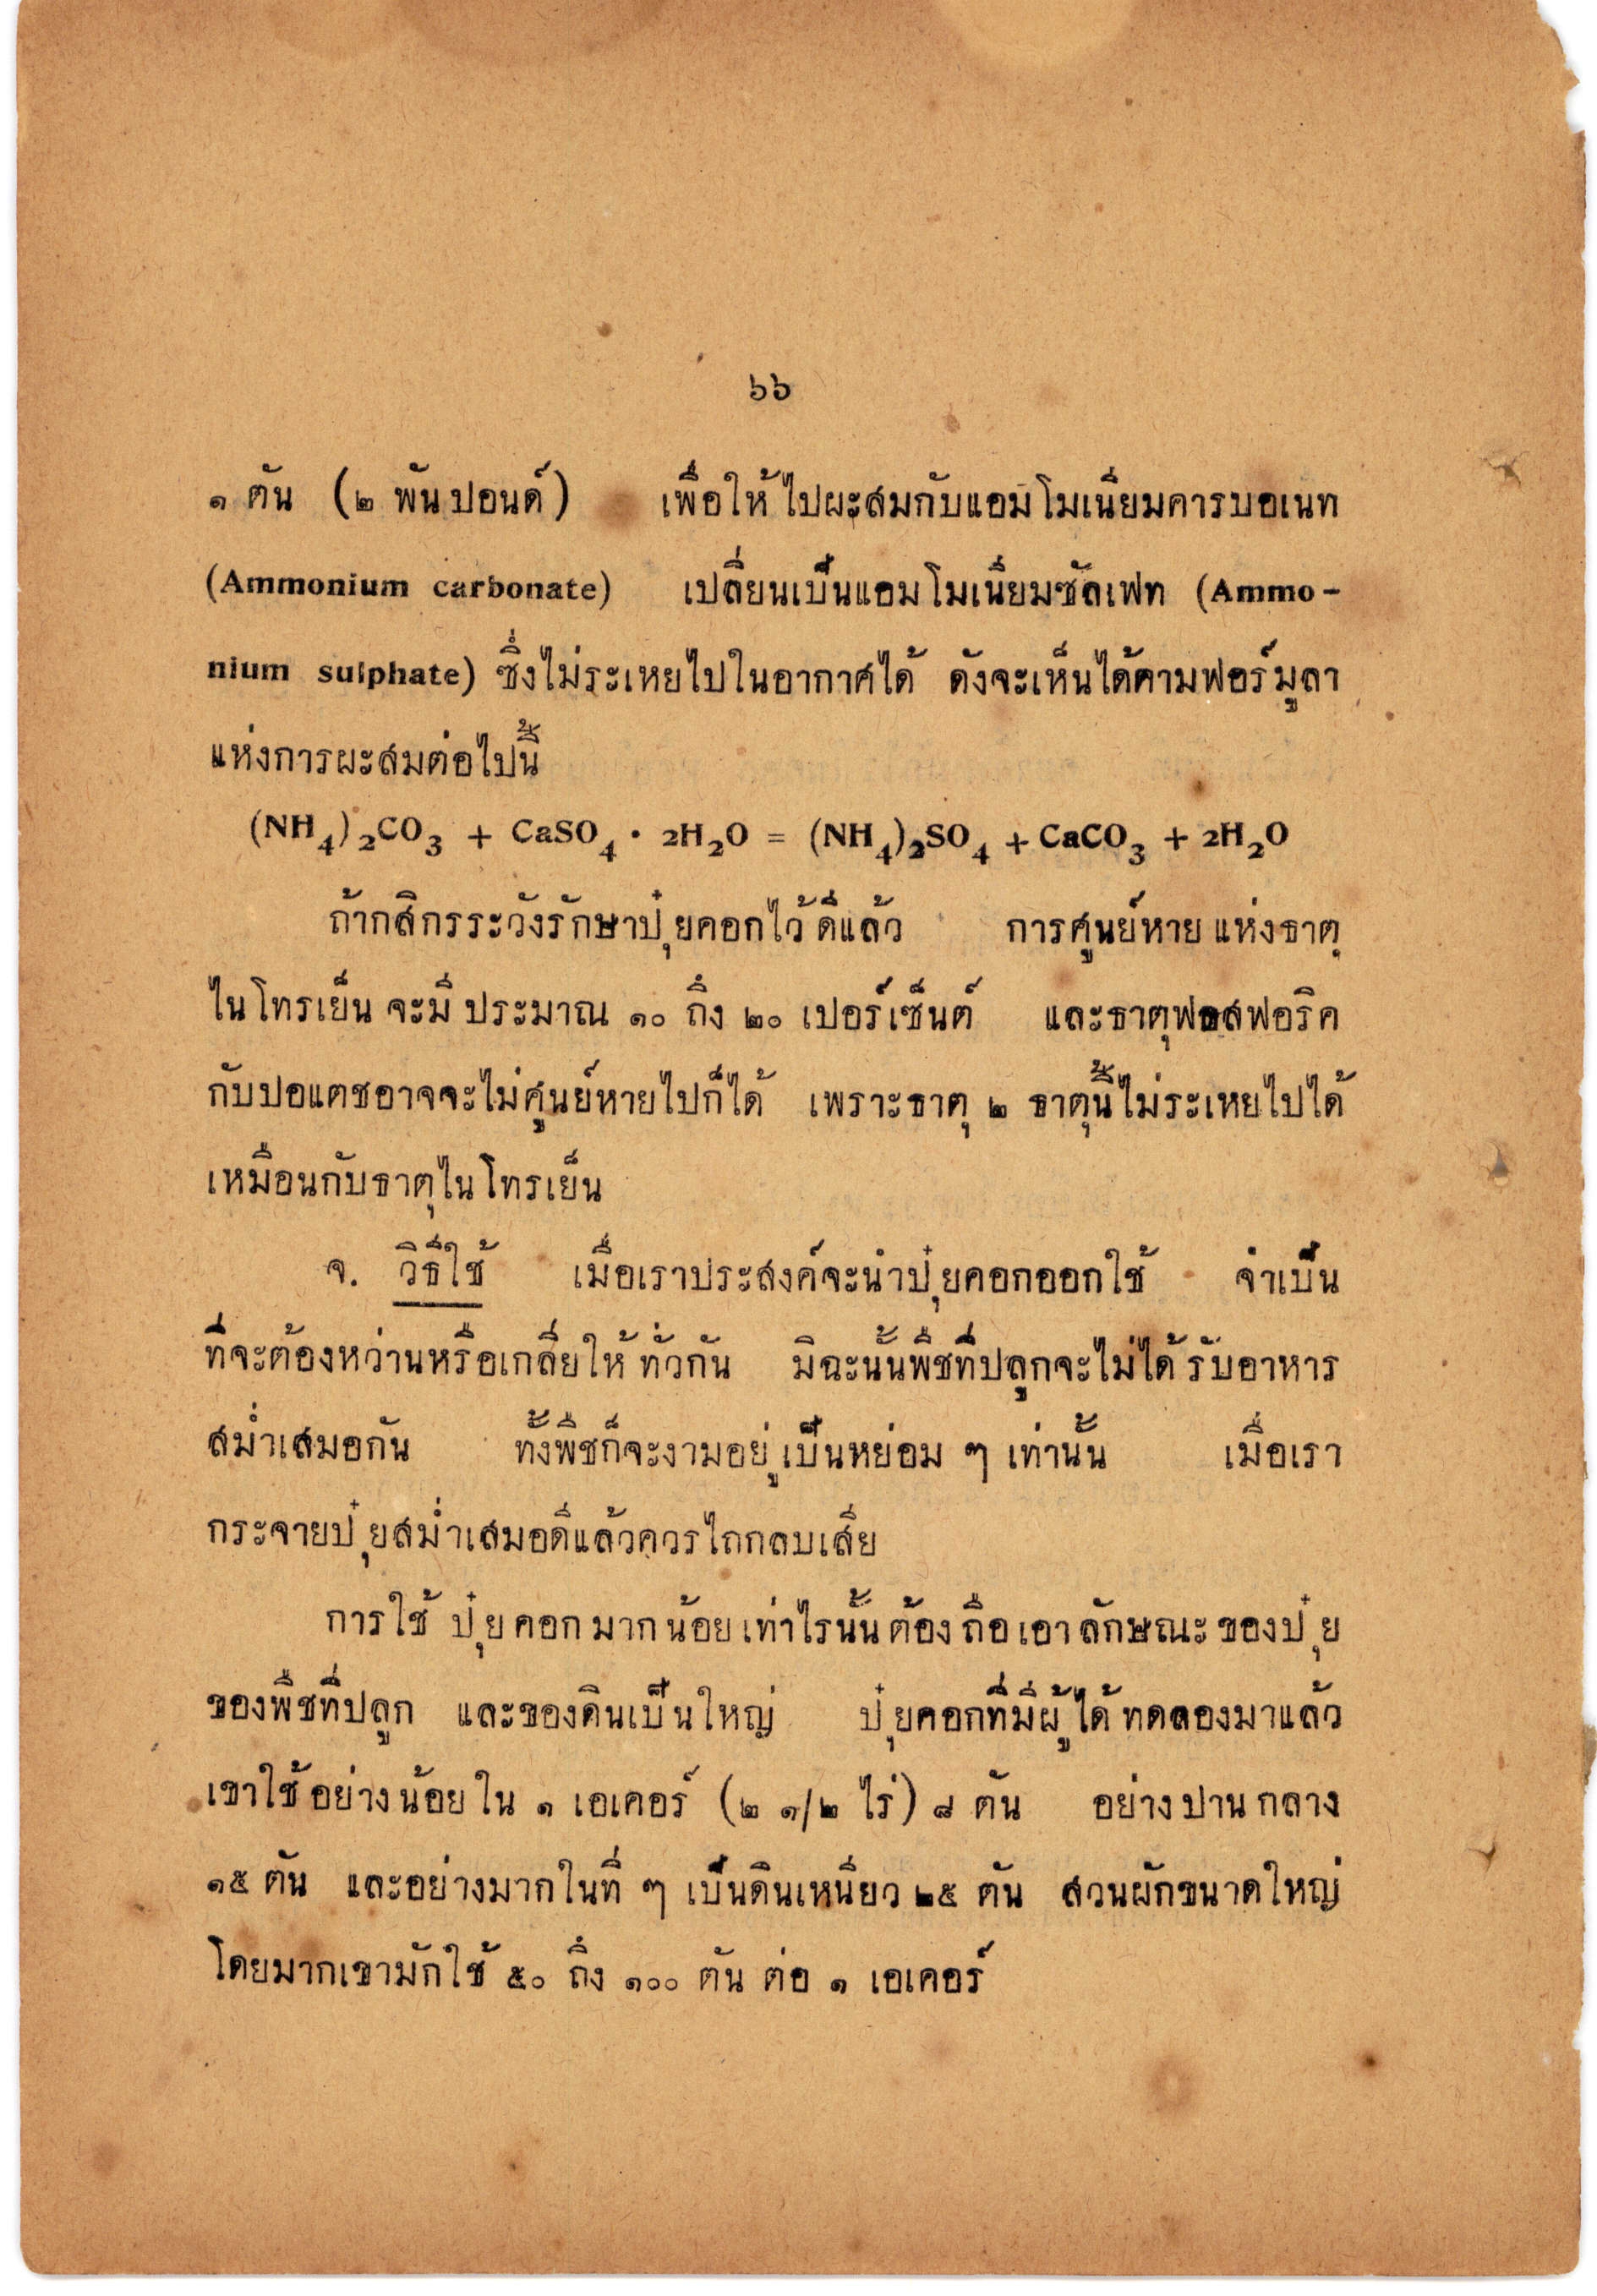 ๖๖
๑ ตัน (๒ พันปอนด์) เพื่อให้ไปผะสมกับแอมโมเนียมคารบอเนท
(Ammonium carbonate) เปลี่ยนเป็นแอมโมเนียมซัลเฟท (Ammo-
nium sulphate) ซึ่งไม่ระเหยไปในอากาศได้ ดังจะเห็นได้ตามฟอร์มูลา
แห่งการผะสมต่อไปนี้
(NH₄)₂CO₃ + CaSO₄ · 2H₂O = (NH₄)₂SO₄ + CaCO₃ + 2H₂O
ถ้ากสิกรระวังรักษาปุ๋ยคอกไว้ดีแล้ว การศูนย์หายแห่งธาตุ
ไนโทรเย็น จะมีประมาณ ๑๐ ถึง ๒๐ เปอร์เซ็นต์ และธาตุฟอสฟอริค
กับปอแตชอาจจะไม่ศูนย์หายไปก็ได้ เพราะธาตุ ๒ ธาตุนี้ไม่ระเหยไปได้
เหมือนกับธาตุไนโทรเย็น
จ. วิธีใช้ เมื่อเราประสงค์จะนำปุ๋ยคอกออกใช้ จำเป็น
ที่จะต้องหว่านหรือเกลี่ยให้ทั่วกัน มิฉะนั้นพืชที่ปลูกจะไม่ได้รับอาหาร
สม่ำเสมอกัน ทั้งพืชก็จะงามอยู่เป็นหย่อม ๆ เท่านั้น เมื่อเรา
กระจายปุ๋ยสม่ำเสมอดีแล้วควรไถกลบเสีย
การใช้ปุ๋ยคอกมากน้อยเท่าไรนั้นต้องถือเอาลักษณะของปุ๋ย
ของพืชที่ปลูก และของดินเป็นใหญ่ ปุ๋ยคอกที่มีผู้ได้ทดลองมาแล้ว
เขาใช้อย่างน้อยใน ๑ เอเคอร์ (๒ ๑/๒ ไร่) ๘ ตัน อย่างปานกลาง
๑๕ ตัน และอย่างมากในที่ ๆ เป็นดินเหนียว ๒๕ ตัน สวนผักขนาดใหญ่
โดยมากเขามักใช้ ๕๐ ถึง ๑๐๐ ตัน ต่อ ๑ เอเคอร์